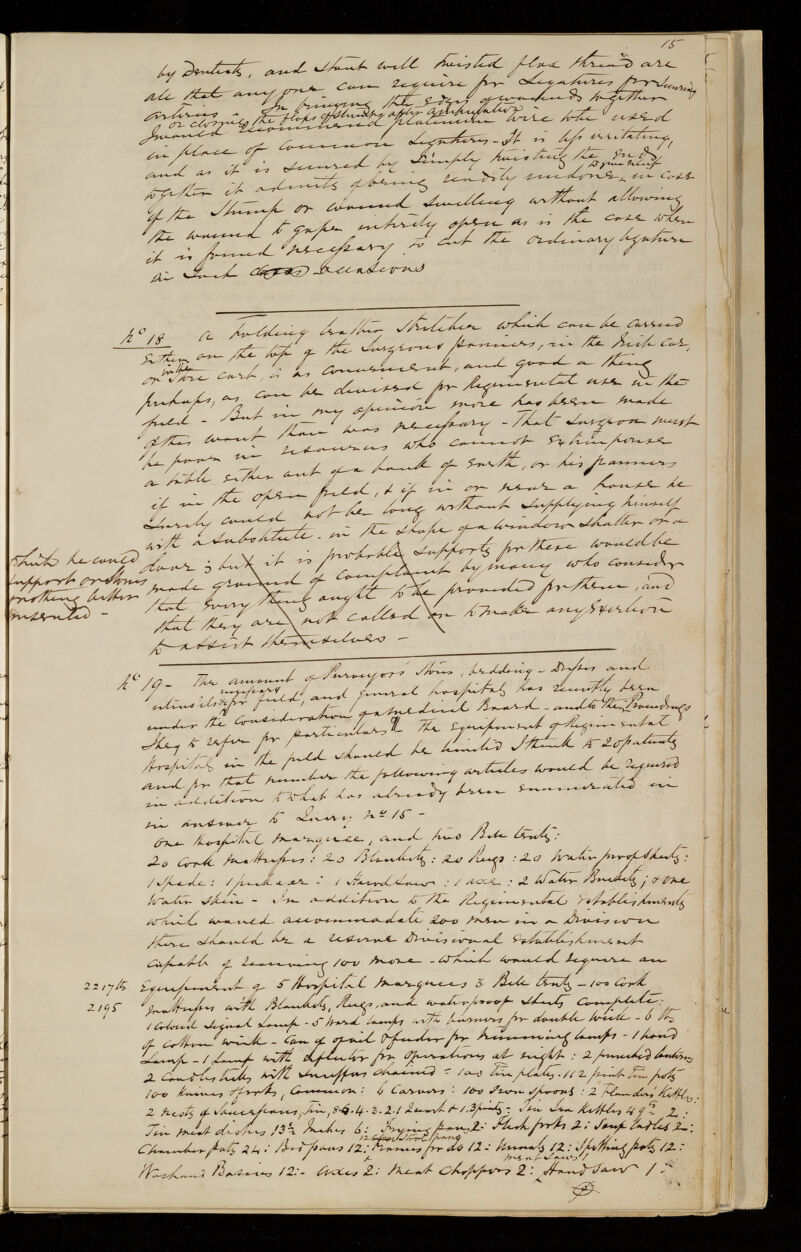 15
by Dentists, and stout well twisted flax thread are
all that any one can require for Ligatures for securing
arteries - In bringing the edges of wounds together
or closing the flaps of stumps after amputation -
I would recommend platinum wire to be used
in place of common Ligatures - It is less irritating,
and as it is secured by simply twisting the ends
together it admits of being readily undone in case
of the Stump or wound swelling without allowing
the wound to gape entirely open as is the case when
it is found necessary to cut the ordinary ligature
in such cases occasions
No 18 A Folding leather Stretcher which can be carried
either on the top of the Surgeons panniers, in the Irish Car,
or in the Store cart, is as convenient, and good a thing
perhaps, as can be devised for Regimental use in the
field - But in my opinion more has been made
of this want than was necessary - That Surgeon must
be poor in resources who cannot extemporise
a table either out of a bank of earth, or his panniers
if in the open field, & if in or near a house he
surely could not be long without supplying himself
with a substitute in the shape of a window shutter or a
door; but it is probable supports for these would be
which he could
support on stones
or nothing better
presented -
made ground of complaint by many who consider
that every thing ought to be provided for them, and
that they are not called on to make any exertion
to assist themselves -
No 19 - The amount of Purveyors Stores, bedding - Drapes and
utensils necessary for field, and general hospitals has recently been
under the consideration of a medical Board - and to their Proceedings
I beg to refer for particulars - The Equipment of Regimental
Hospitals in the field should be limited I think to 20 patients
and for that number the following articles would be required
in addition to what has already been enumerated in
in answer to Query No 15 -
One Hospital marquee, and two Bell tents:
20 Cork Mattresses: 20 Blankets: 20 Rugs: 20 Water proof Sheets:
1 Spade: 1 pickaxe: 1 Hand Saw: 1 axe: 2 Water Buckets; & one
Water Skin - In addition to the Regimental Establishments
which would accommodate 200 men in a Division
there should be a reserve Divisional establishment
capable of receiving 100 more - which would require an
22 17th
2195
Equipment of 5 Hospital Marquees 3 Bell tents - 100 Cork
Mattresses with Blankets, Rugs, and waterproof sheets complete:
1 Colored Signal Lamp - 5 Ward lamps with burners for double wick - 6 lbs
of Cotton wick - Can of oil & feeder for trimming lamps - 1 hand
Lamp - 1 Lamp with reflector for operations at night: 2 punched lanterns
2 Candlesticks with Snuffers chained = 100 tin plates. 112 pint tin pots
100 Knives & forks, common: 6 Carvers: 100 Iron spoons: 2 Flanders Kettles:
2 nests of Saucepans, tin, 8.6.4.3.2.1 Quart & 1.3 pints: Tin Tea Kettles 4 qts 2:
Tin meat dishes 13½ Inches 6: Frying pans 2: Flesh forks 2: Soup ladles 2:
Chamber pots 24: Bed pans 12: Frames for do 12: Urinals 12: Spitting pots 12:
12 Close Stool pans
Washhand Basins 12: - Axes 2: Meat Choppers 2: Hand Saw 1:
meat Saws 1